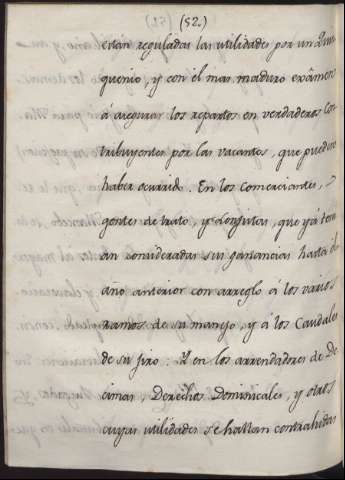 (52.)
están reguladas las utilidades por un Quin
quenio, y con el mas maduro exâmen
á asegurar los repartos en verdaderos Con
tribuyentes por las vacantes, que puedan
haber ocurrido. En los Comerciantes,
gentes de trato, y Lonjistas, que yá ten
an consideradas sus ganancias hasta el
año anterior con arreglo á los varios
ramos de su manejo, y á los Caudales
de su jiro: Y en los arrendadores de De
cimas, Derechos Dominicales, y otros
cuyas utilidades se hallan contrahidas